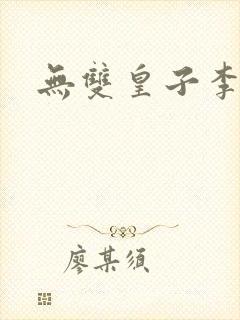 無雙皇子李
廖某須